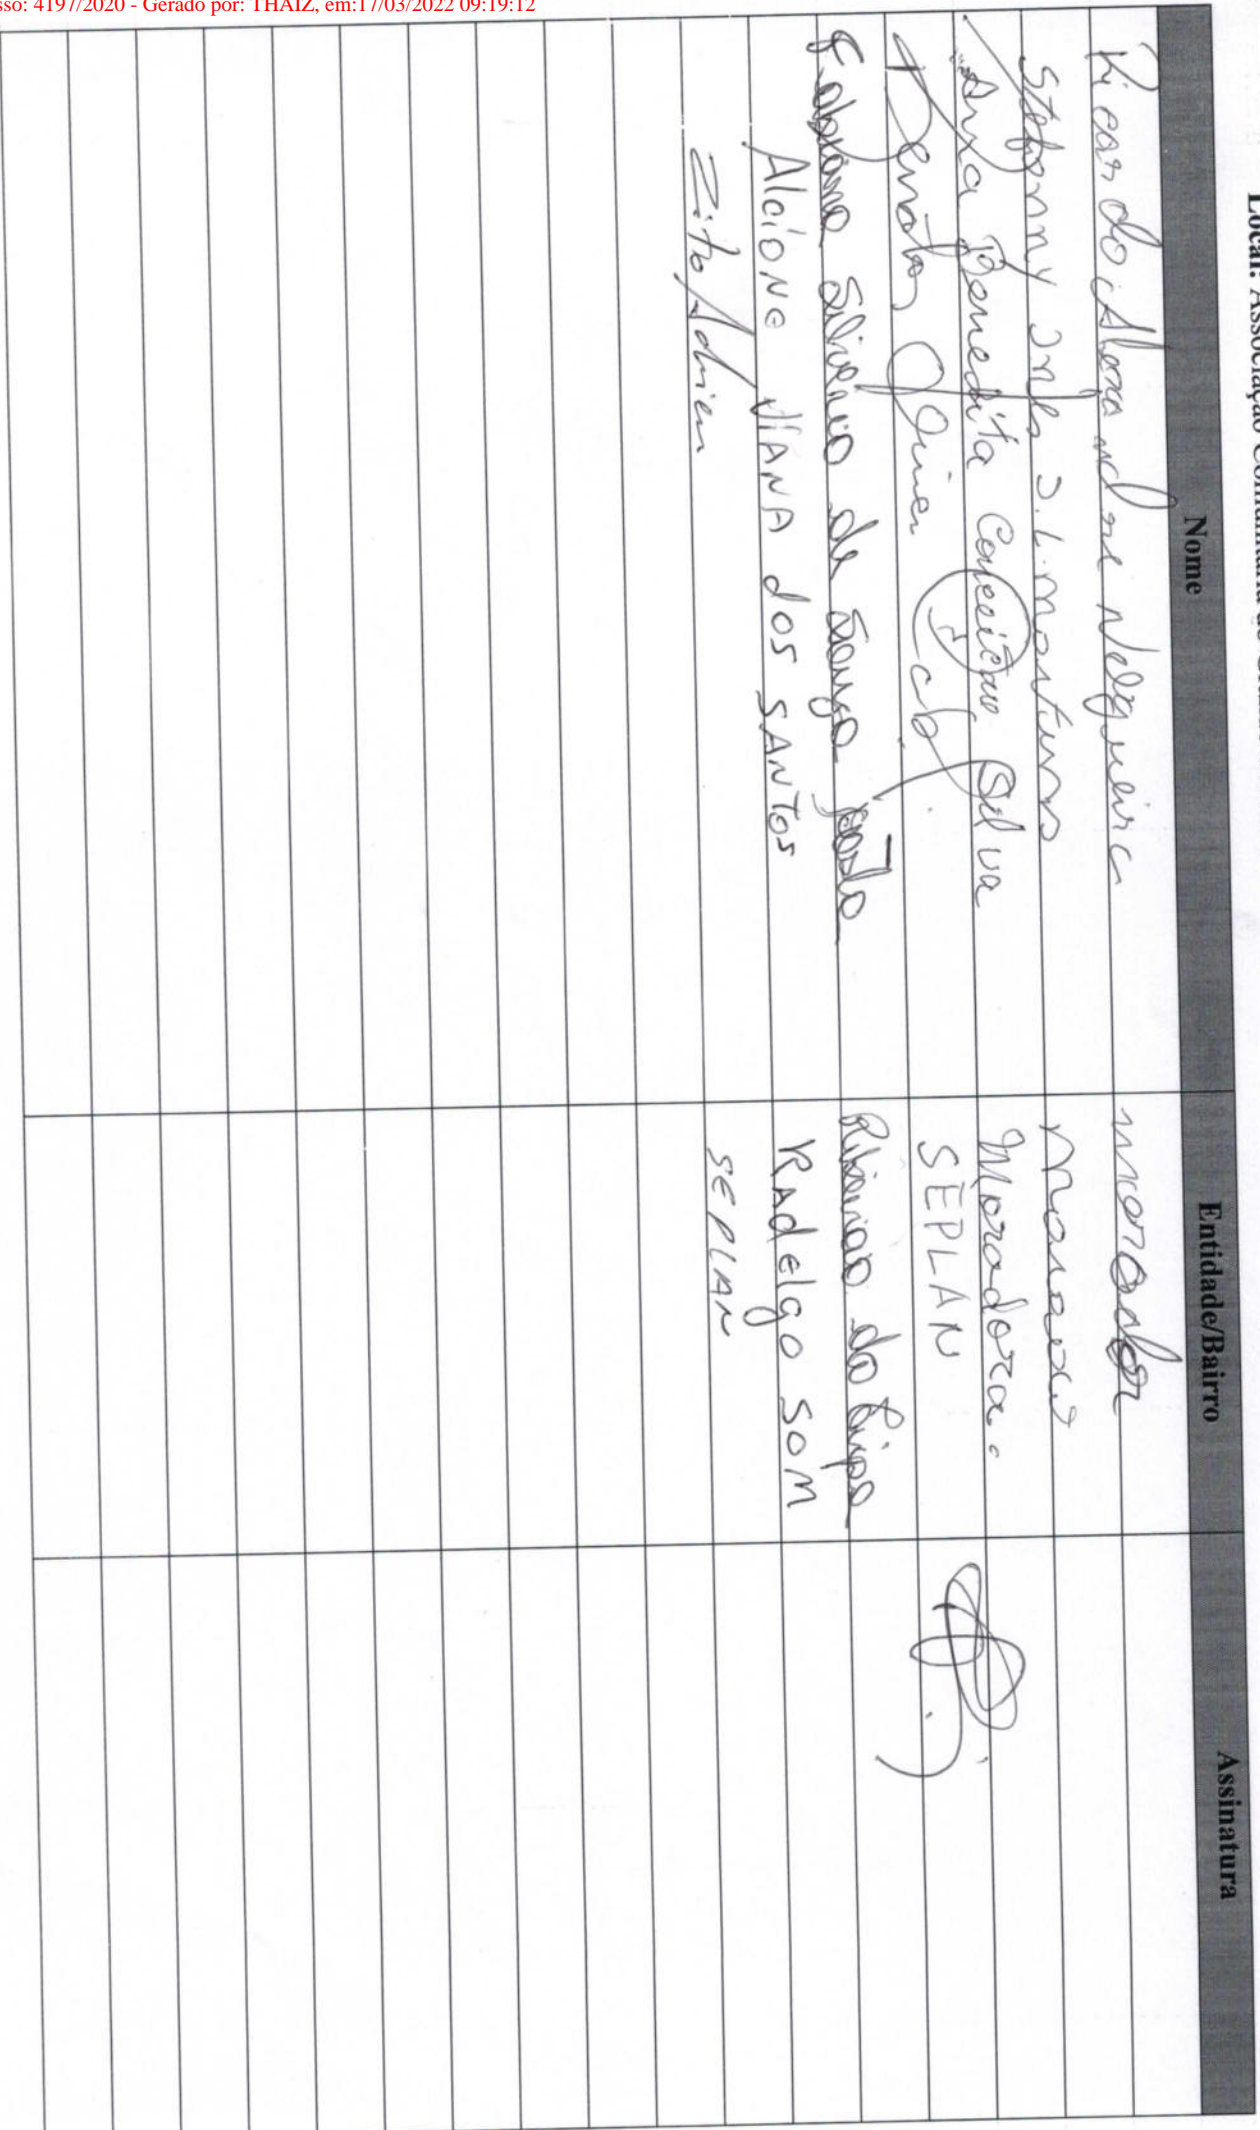 sso: 4197/2020 - Gerado por: THAIZ, em:17/03/2022 09:19:12
Local: Associação Comunitária de
Nome Entidade/Bairro Assinatura
Ricardo Alexandre Nogueira morador
Stefanny Inês S. L. Martins
Ana Benedita Conceição Silva Moradora.
SEPLAN
Fabiano Silvério de Ribeirão do Lipa
Alcione Viana dos Santos Radelgo Som
Zito Adrien SEPLAN